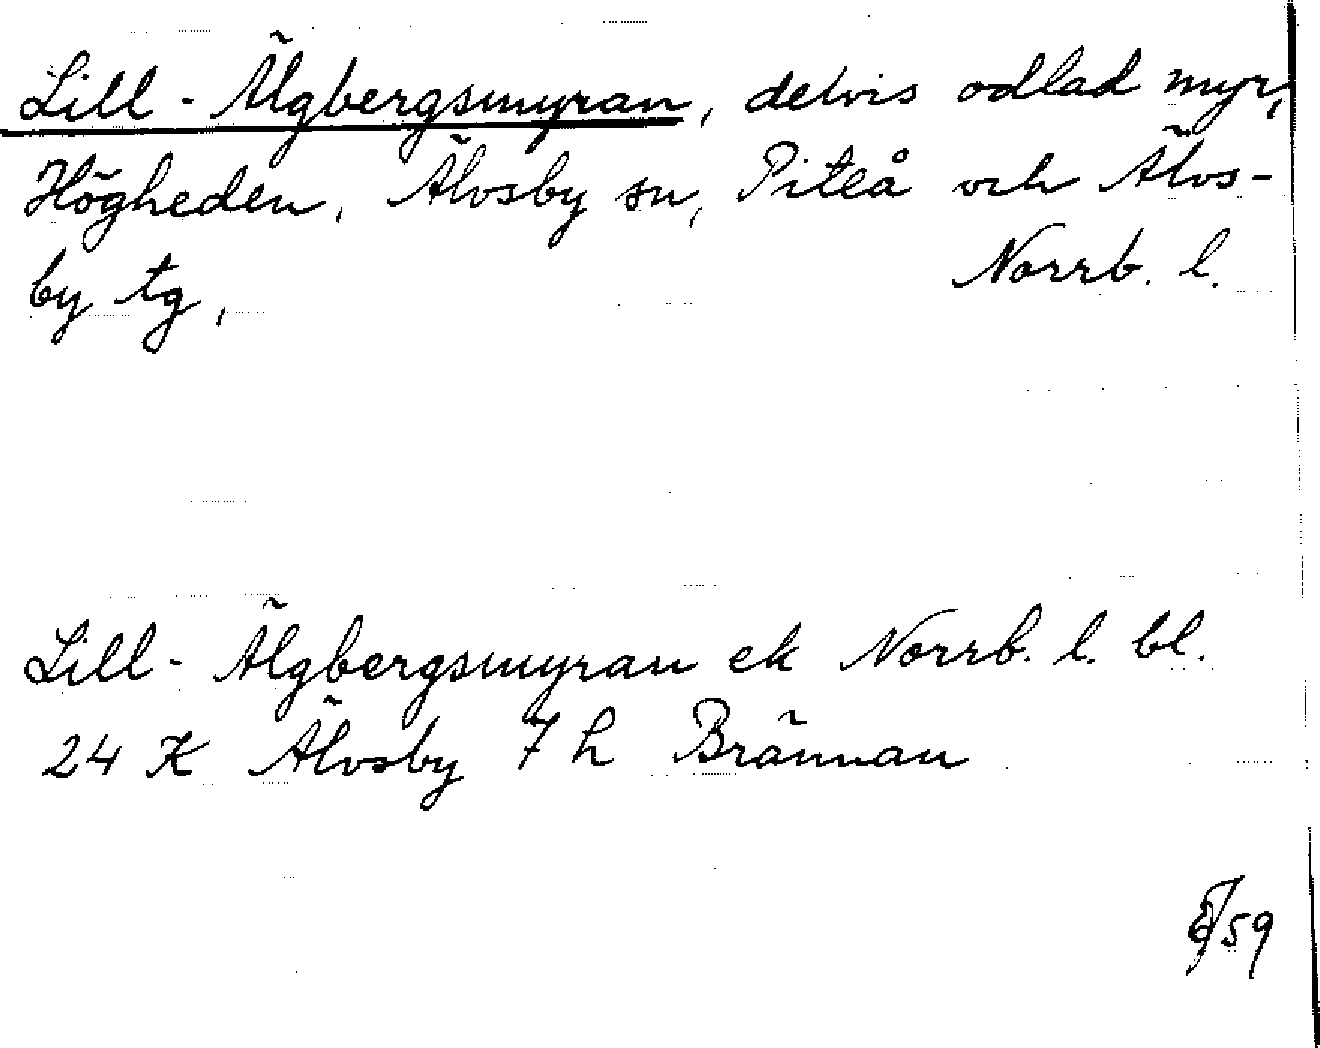 Lill-Älgbergsmyran, delvis odlad myr,
Högheden, Älvsby sn, Piteå och Älvs-
by tg, Norrb. l.
Lill-Älgbergsmyran ek Norrb. l. bl.
24 K Älvsby 7 h Brännan
59